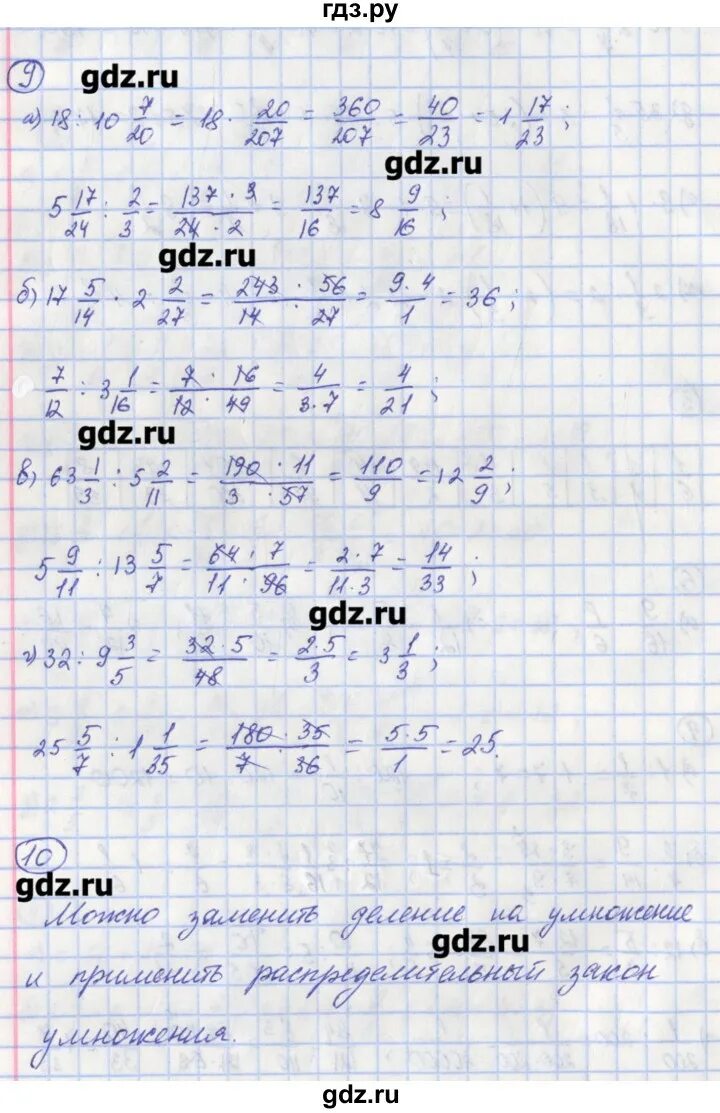 гдз.ру
9 gdz.ru
а) 18 : 10 7/20 = 18 · 20/207 = 360/207 = 40/23 = 1 17/23 ;
gdz.ru
5 17/24 : 2/3 = 137 · 3/24 · 2 = 137/16 = 8 9/16 ;
gdz.ru
б) 17 5/14 · 2 2/27 = 243 · 56/14 · 27 = 9 · 4/1 = 36 ;
7/12 : 3 1/16 = 7 · 16/12 · 49 = 4/3 · 7 = 4/21 ;
gdz.ru
в) 63 1/3 : 5 2/11 = 190 · 11/3 · 57 = 110/9 = 12 2/9 ;
5 9/11 : 13 5/7 = 64 · 7/11 · 96 = 2 · 7/11 · 3 = 14/33 ;
gdz.ru
г) 32 : 9 3/5 = 32 · 5/48 = 2 · 5/3 = 3 1/3 ;
25 5/7 : 1 1/35 = 180 · 35/7 · 36 = 5 · 5/1 = 25.
10
gdz.ru
Можно заменить деление на умножение
gdz.ru
и применить распределительный закон
умножения.
gdz.ru